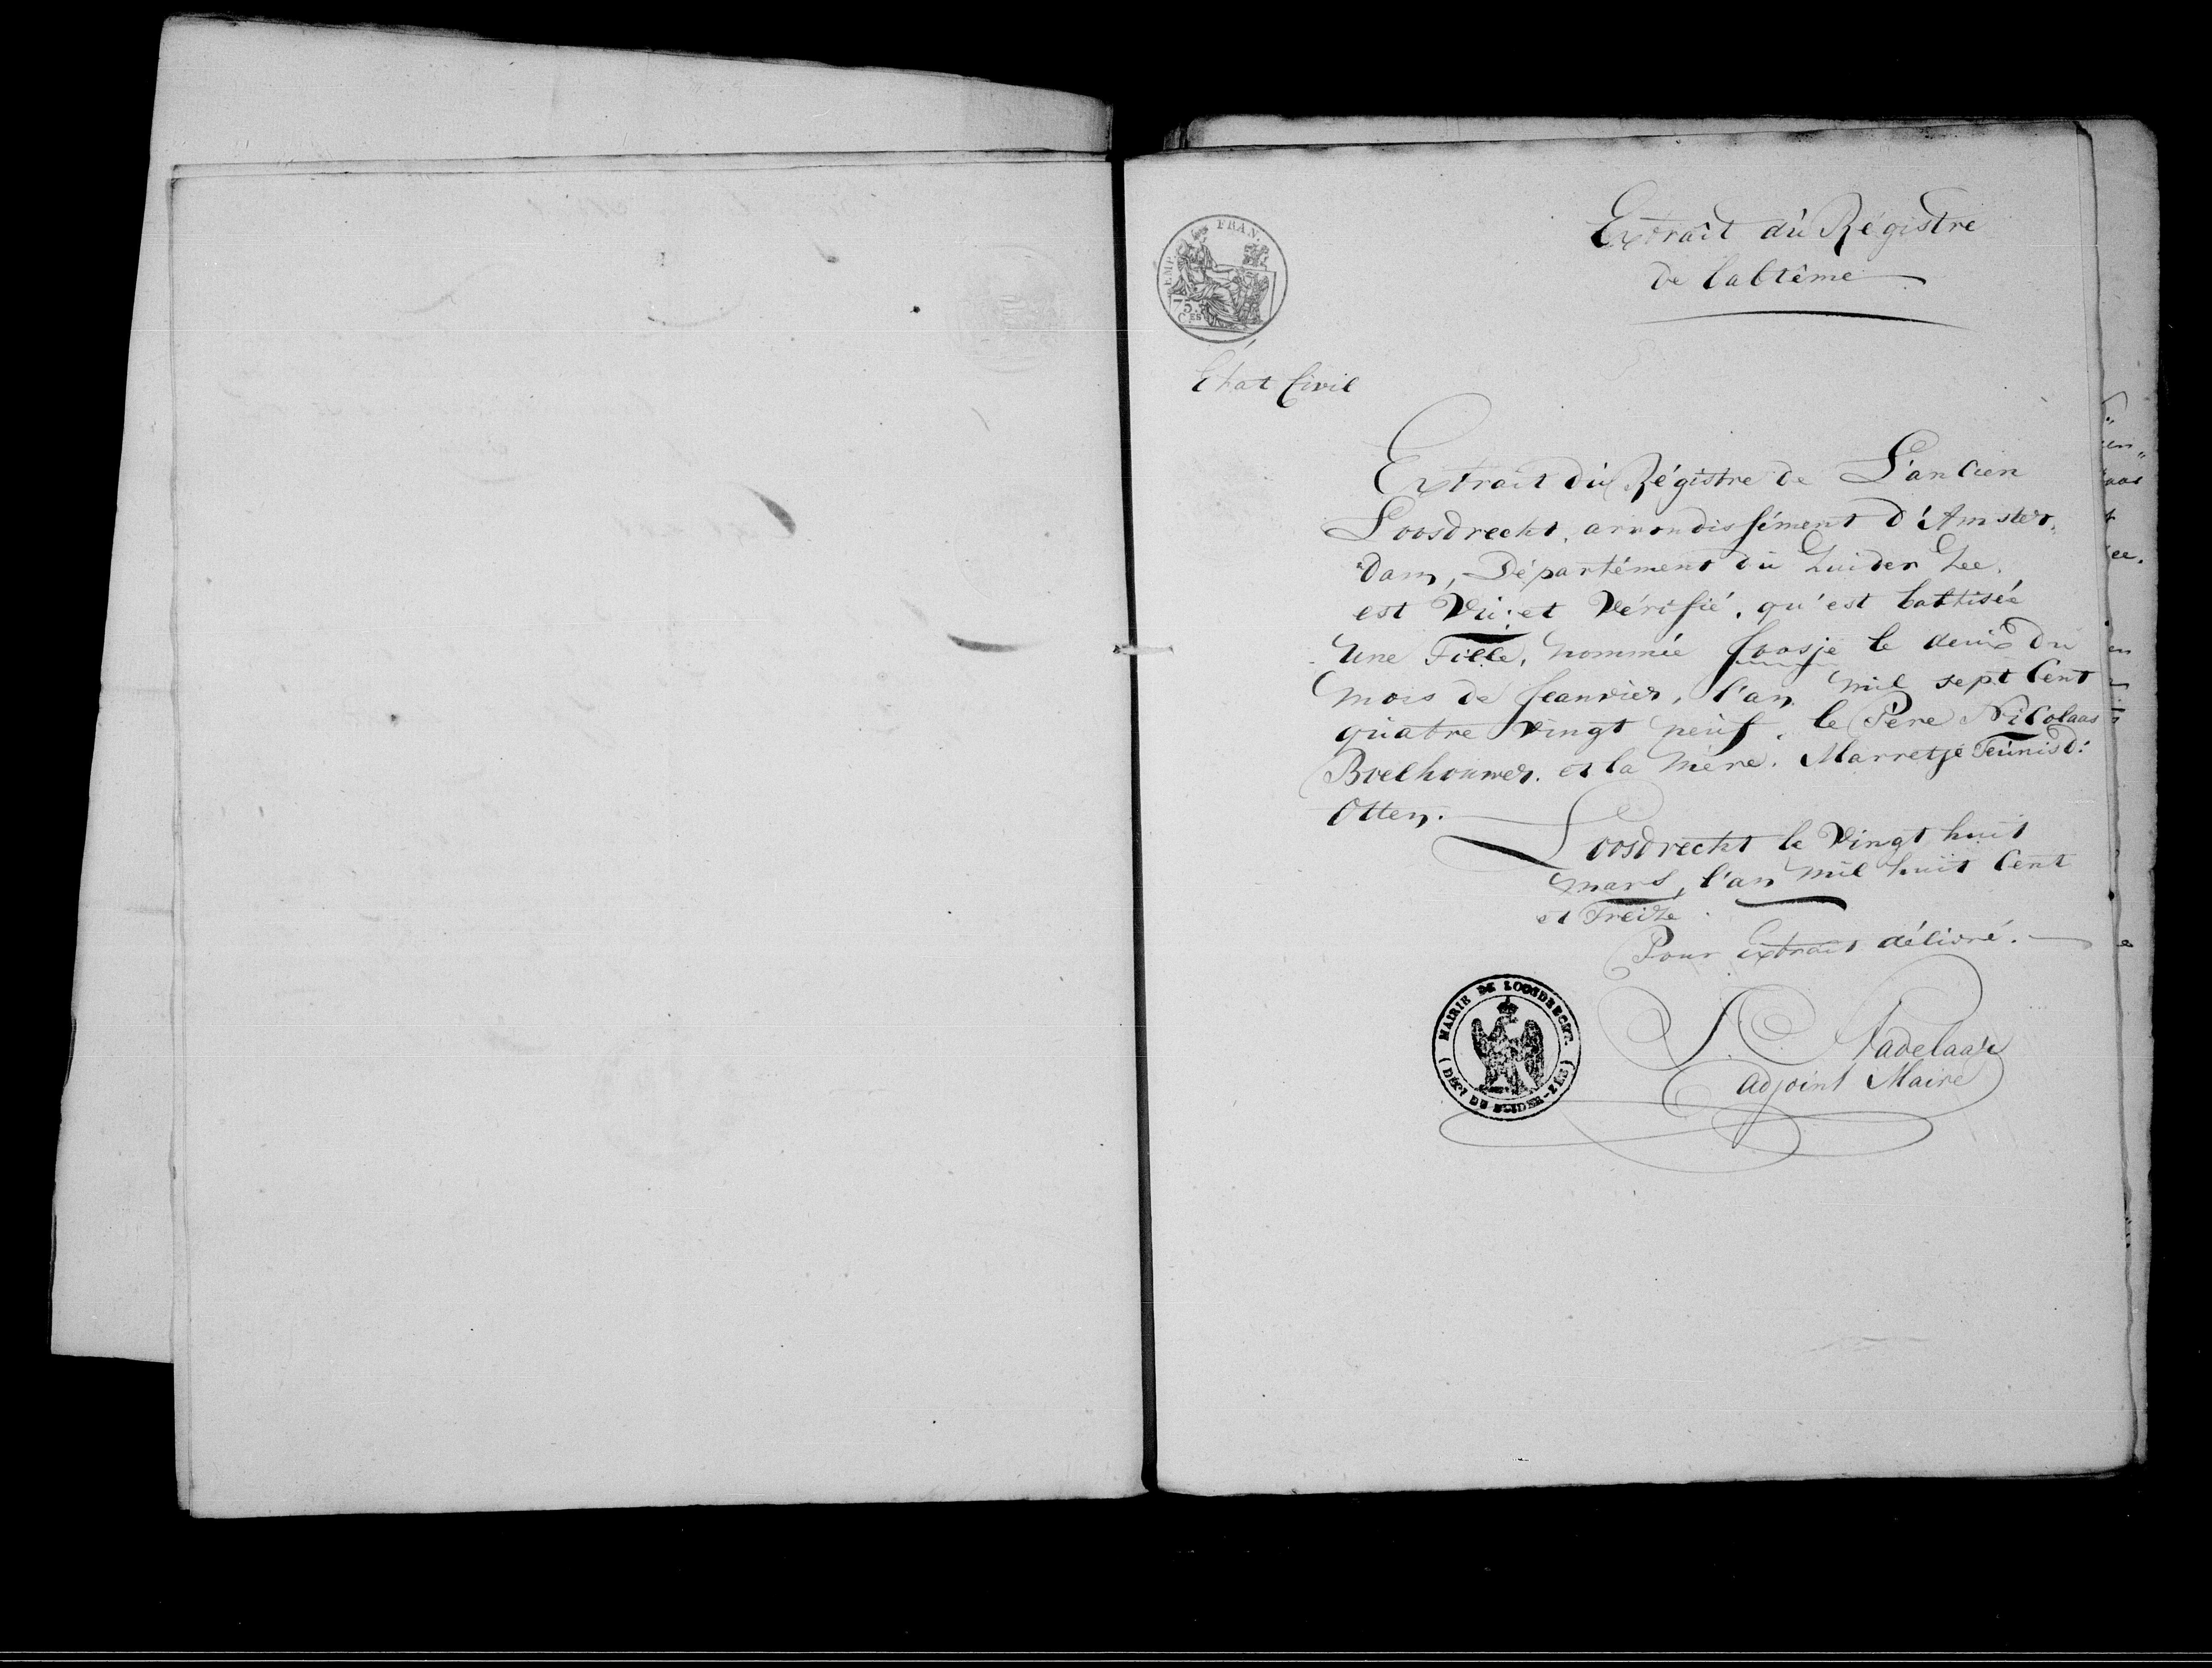 Extrait du Régistre
de babtême
EMP. FRAN.
75.
C.ES
État Civil
Extrait du Régistre de L'ancien
Loosdrecht, arrondissément d'Amster,
dam, Départément du Zuider Zee.
est Vu: et Vérifié, qu'est battisée
Une Fille, nommée Joosje le deux du
mois de Jeanvier, l'an mil sept Cent
quatre Vingt neuf, le Père Nicolaas
Breehouwer. et la Mère. Marretje Teunis d:
Otten.
Loosdrecht le Vingt huit
mars, l'an mil huit Cent
et Treize.
Pour Extrait délivré.
MAIRIE DE LOOSDRECHT. (DÉP.T DU ZUIDER-ZEE)
adjoint Maire